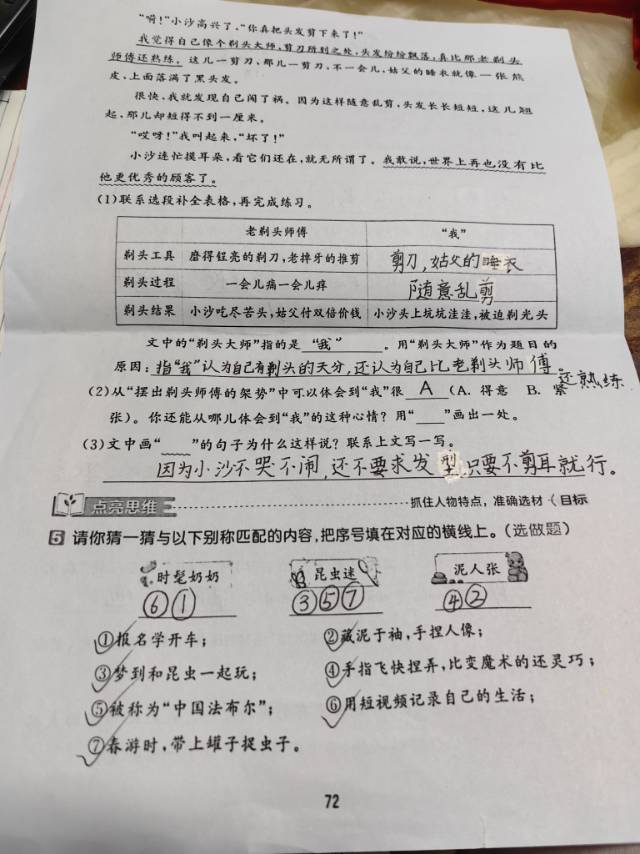 “啊!”小沙高兴了,“你真把头发剪下来了!”
我觉得自己像个剃头大师,剪刀所到之处,头发纷纷飘落,真比那老剃头
师傅还熟练。这儿一剪刀、那儿一剪刀,不一会儿,姑父的睡衣就像一张熊
皮,上面落满了黑头发。
很快,我就发现自己闯了祸。因为这样随意乱剪,头发长长短短,这儿翘
起,那儿却短得不到一厘米。
“哎呀!”我叫起来,“坏了!”
小沙连忙摸耳朵,看它们还在,就无所谓了。我敢说,世界上再也没有比
他更优秀的顾客了。
(1)联系选段补全表格,再完成练习。
老剃头师傅 “我”
剃头工具 磨得锃亮的剃刀,老掉牙的推剪 剪刀,姑父的睡衣
剃头过程 一会儿痛一会儿痒 随意乱剪
剃头结果 小沙吃尽苦头,姑父付双倍价钱 小沙头上坑坑洼洼,被迫剃光头
文中的“剃头大师”指的是 “我” 。用“剃头大师”作为题目的
原因: 指“我”认为自己有剃头的天分,还认为自己比老剃头师傅
还熟练
(2)从“摆出剃头师傅的架势”中可以体会到“我”很 A (A. 得意 B. 紧
张)。你还能从哪儿体会到“我”的这种心情?用“___”画出一处。
(3)文中画“ ”的句子为什么这样说?联系上文写一写。
因为小沙不哭不闹,还不要求发型,只要不剪耳就行。
点亮思维 抓住人物特点,准确选材 目标
5 请你猜一猜与以下别称匹配的内容,把序号填在对应的横线上。(选做题)
时髦奶奶 昆虫迷 泥人张
⑥① ③⑤⑦ ④②
①报名学开车; ②藏泥于袖,手捏人像;
③梦到和昆虫一起玩; ④手指飞快捏弄,比变魔术的还灵巧;
⑤被称为“中国法布尔”; ⑥用短视频记录自己的生活;
⑦春游时,带上罐子捉虫子。
72